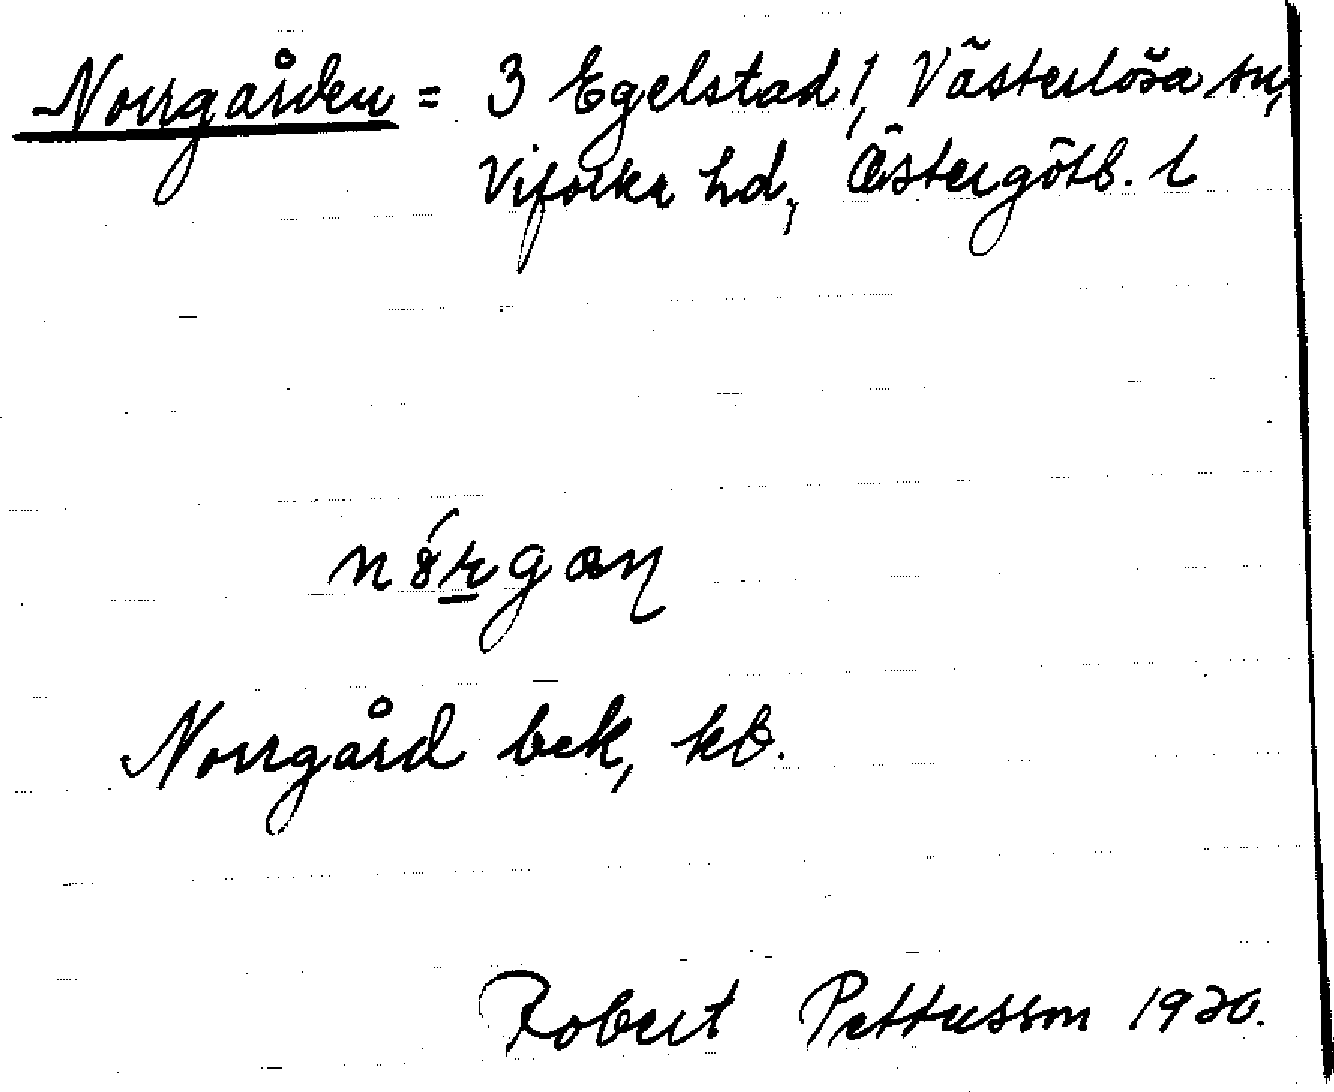 Norrgården = 3 Egelstad 1, Västerlösa sn,
Vifolka hd, Östergötl. l
nórgaꞑ
Norrgård bek, kb.
Robert Pettersson 1920.